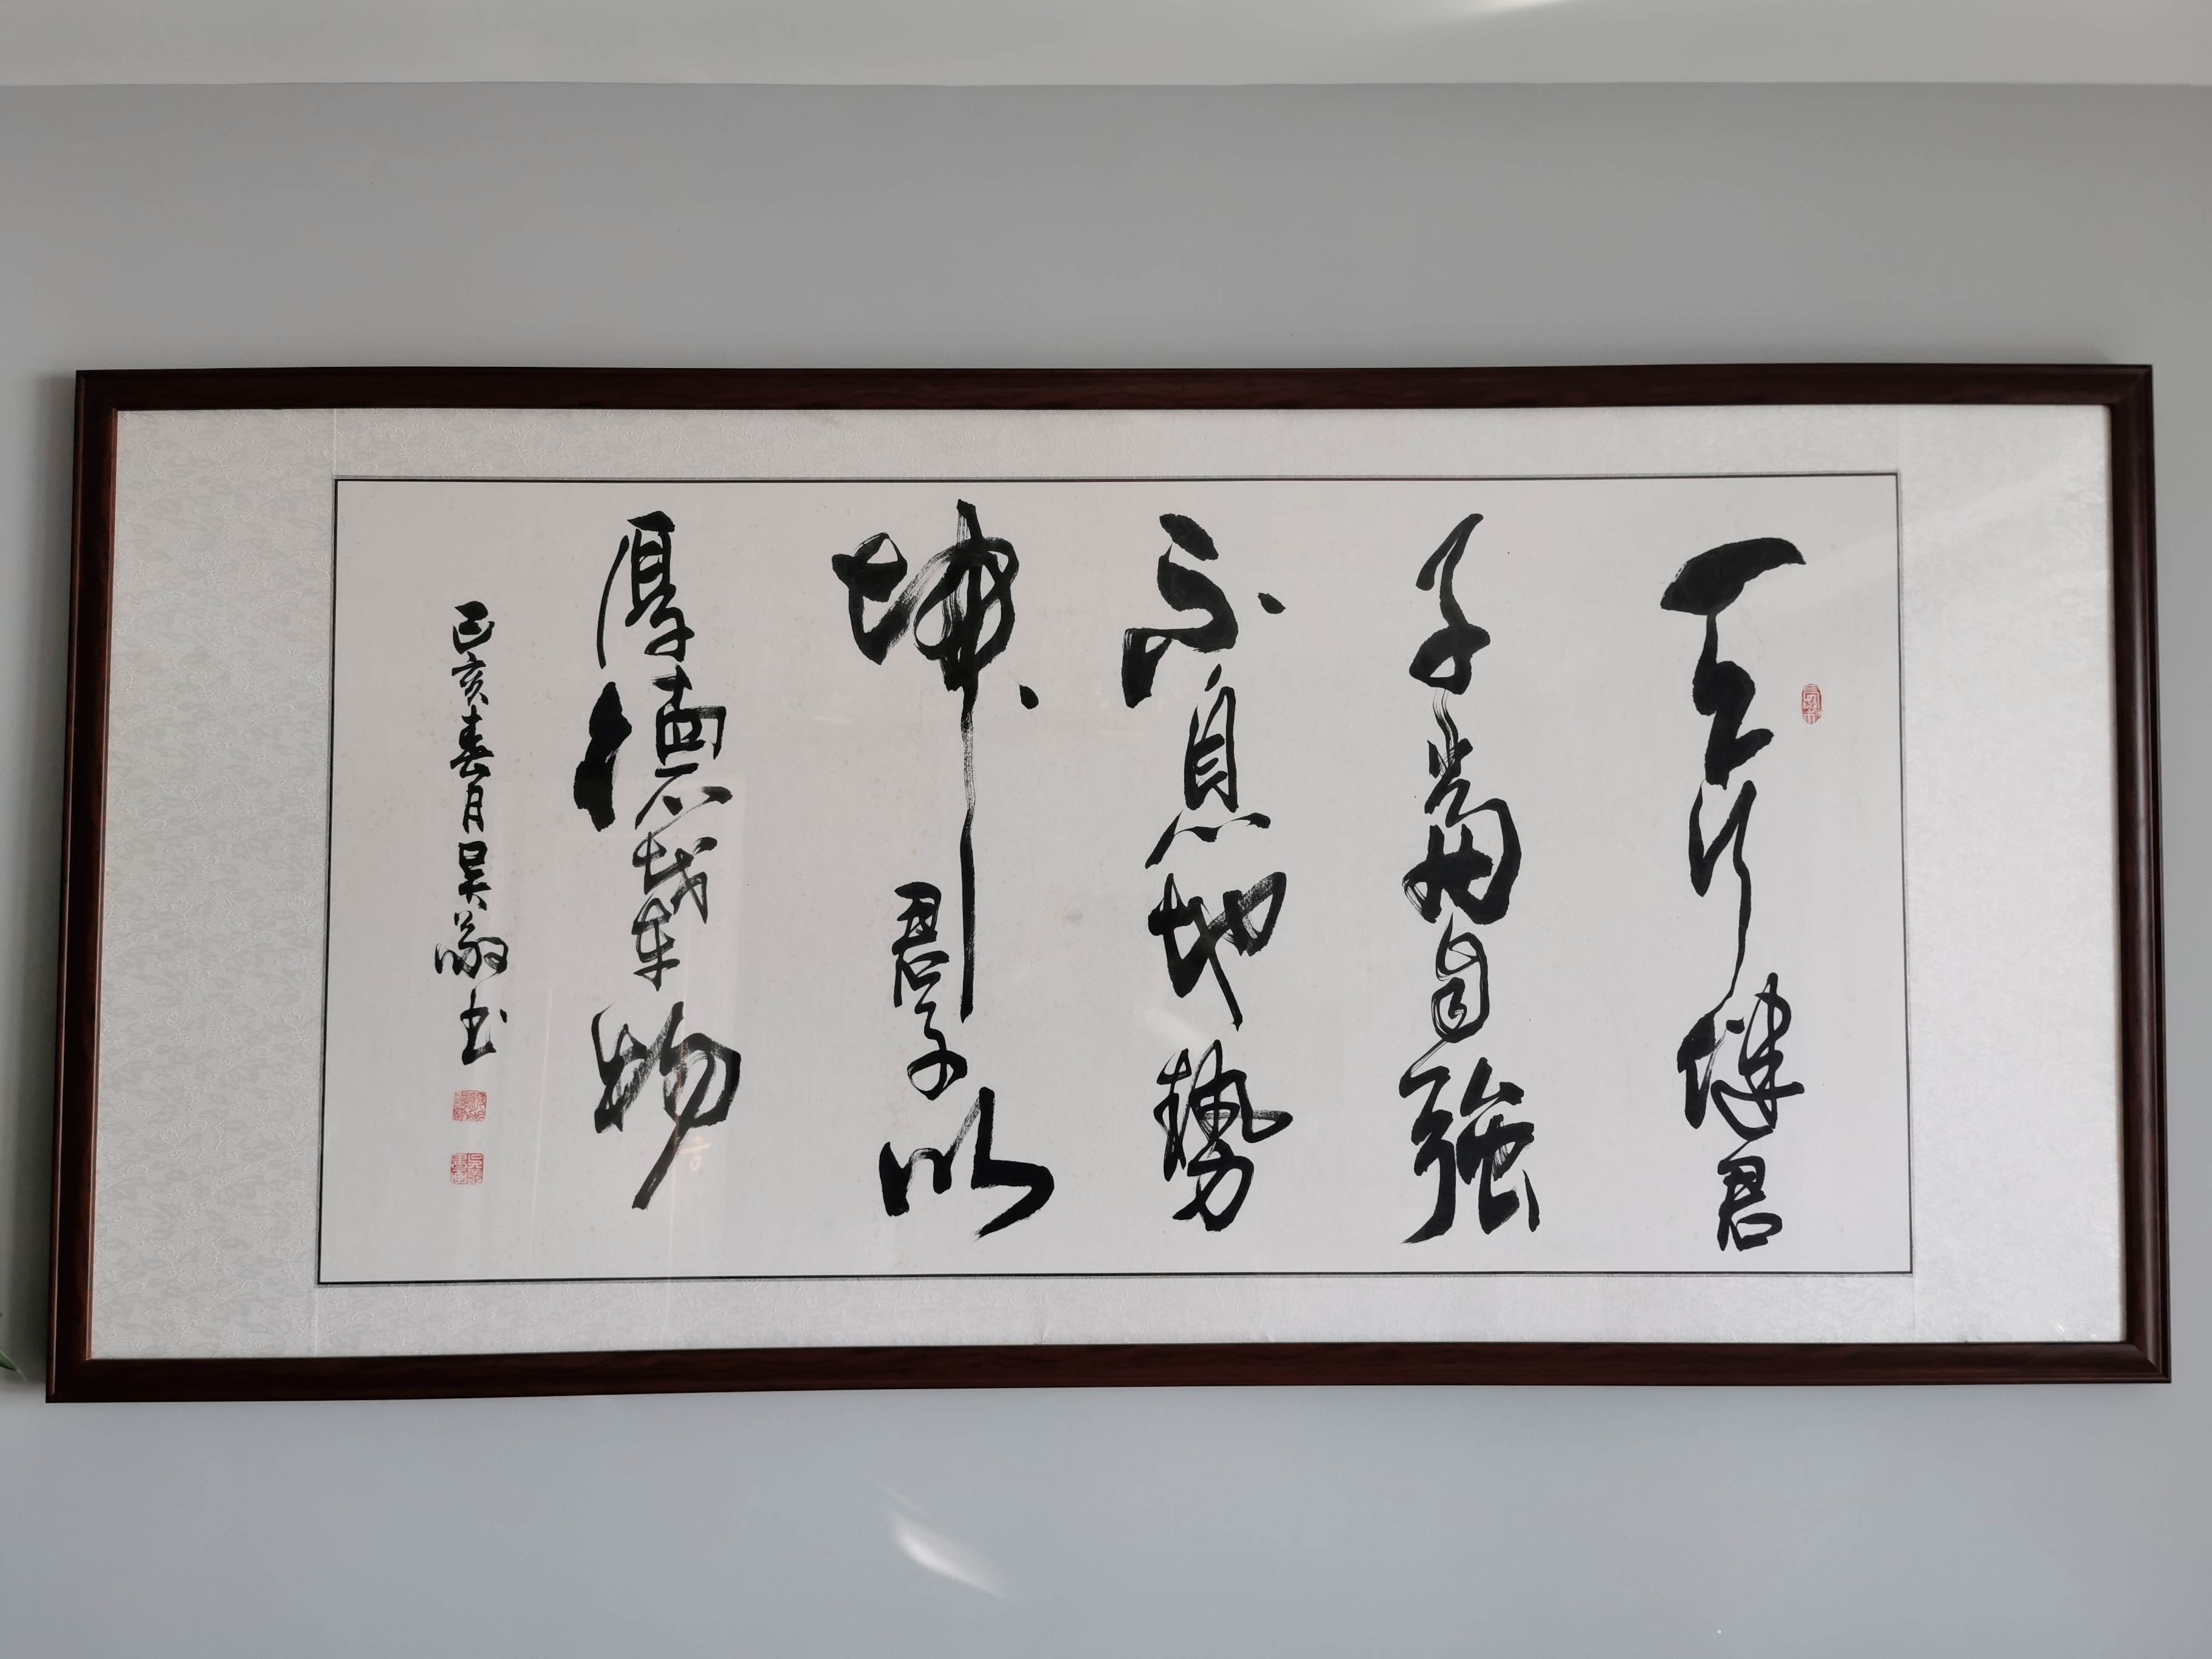 天行健君
子當自強
不息地勢
坤君子以
厚德載物
己亥春月吴书